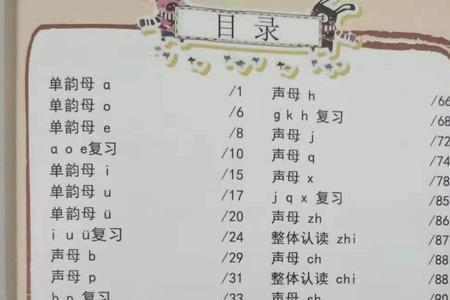 目录
单韵母 a /1
单韵母 o /6
单韵母 e /8
a o e复习 /10
单韵母 i /15
单韵母 u /17
单韵母 ü /20
i u ü复习 /24
声母 b /29
声母 p /31
b p 复习 /33
声母 h /66
g k h 复习 /68
声母 j /72
声母 q /74
声母 x /78
j q x 复习 /85
声母 zh /86
整体认读 zhi /87
声母 ch /88
整体认读 chi /88
声母 sh /90